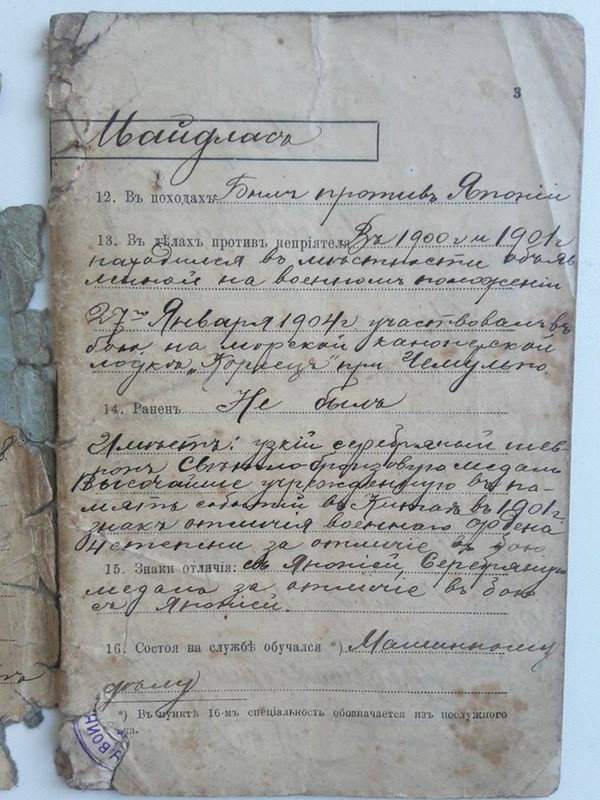 3
Майдлась
12. Въ походахъ: Былъ противъ Японіи
13. Въ дѣлахъ противъ непріятеля Въ 1900 г и 1901 г
находился въ мѣстности объяв
леной на военномъ положеніи
27го Января 1904 г участвовалъ въ
бою на морской канонерской
лодкѣ „Кореецъ" при Чемульпо.
14. Раненъ Не былъ
Имѣетъ: узкій серебряный шев-
ронъ Свѣтлобронзовую медаль
Высочайше учрежденную въ па-
мять событій въ Китаѣ въ 1901 г
знакъ отличія военнаго ордена
4 степени за отличіе въ бою
15. Знаки отличія: съ Японіей, Серебряную
медаль за отличіе въ бою
съ Японіей.
16. Состоя на службѣ обучался *) Машинному
дѣлу
*) Въ пунктѣ 16-мъ спеціальность обозначается изъ послужного